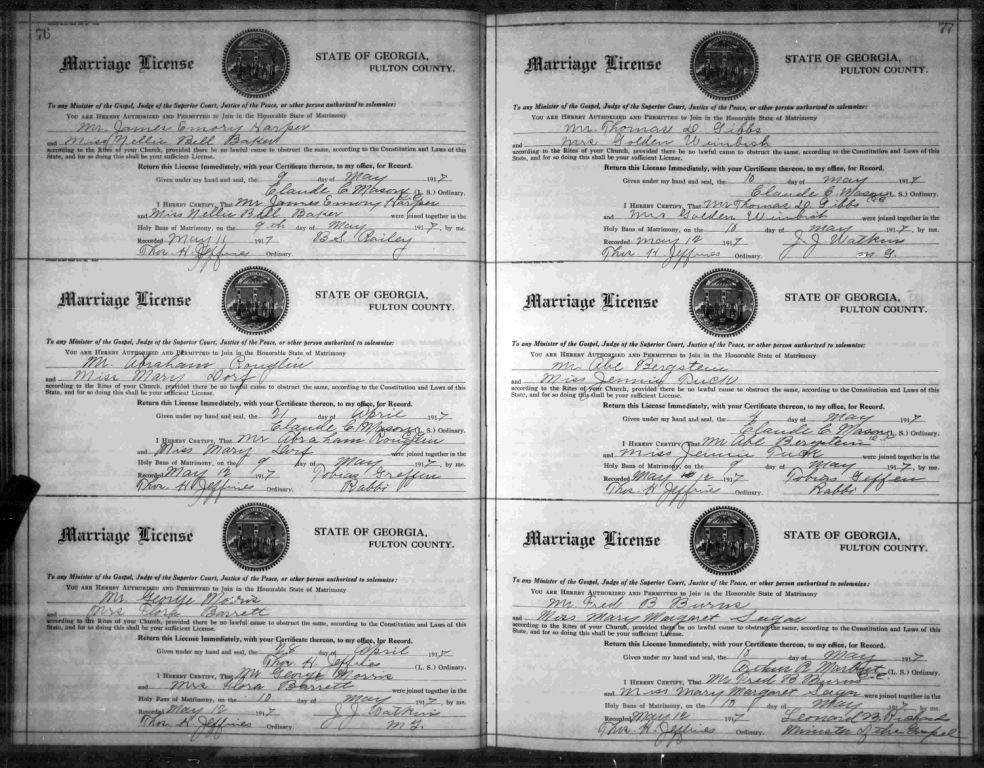 76
Marriage License
STATE OF GEORGIA,
FULTON COUNTY.
To any Minister of the Gospel, Judge of the Superior Court, Justice of the Peace, or other person authorized to solemnize:
YOU ARE HEREBY AUTHORIZED AND PERMITTED to Join in the Honorable State of Matrimony
Mr. James Emory Harper
and Miss Nellie Bell Baker
according to the Rites of your Church, provided there be no lawful cause to obstruct the same, according to the Constitution and Laws of this
State, and for so doing this shall be your sufficient License.
Return this License Immediately, with your Certificate thereon, to my office, for Record.
Given under my hand and seal, the 9 day of May 1917
Claude C Mason (L. S.) Ordinary.
I HEREBY CERTIFY, That Mr James Emory Harper
and Miss Nellie Bell Baker were joined together in the
Holy Bans of Matrimony, on the 9th day of May 1917, by me.
Recorded May 11 1917 B.S. Railey
Thos. H. Jeffries Ordinary.
Marriage License
STATE OF GEORGIA,
FULTON COUNTY.
To any Minister of the Gospel, Judge of the Superior Court, Justice of the Peace, or other person authorized to solemnize:
YOU ARE HEREBY AUTHORIZED AND PERMITTED to Join in the Honorable State of Matrimony
Mr. Abraham Rouglin
and Miss Mary Dorf
according to the Rites of your Church, provided there be no lawful cause to obstruct the same, according to the Constitution and Laws of this
State, and for so doing this shall be your sufficient License.
Return this License Immediately, with your Certificate thereon, to my office, for Record.
Given under my hand and seal, the 21 day of April 1917
Claude C Mason (L. S.) Ordinary.
I HEREBY CERTIFY, That Mr Abraham Rouglin
and Miss Mary Dorf were joined together in the
Holy Bans of Matrimony, on the 9 day of May 1917, by me.
Recorded May 12 1917 Tobias Greffen
Thos H. Jeffries Ordinary. Rabbi
Marriage License
STATE OF GEORGIA,
FULTON COUNTY.
To any Minister of the Gospel, Judge of the Superior Court, Justice of the Peace, or other person authorized to solemnize:
YOU ARE HEREBY AUTHORIZED AND PERMITTED to Join in the Honorable State of Matrimony
Mr George Morris
and Mrs Flora Barrett
according to the Rites of your Church, provided there be no lawful cause to obstruct the same, according to the Constitution and Laws of this
State, and for so doing this shall be your sufficient License.
Return this License Immediately, with your Certificate thereon, to my office, for Record.
Given under my hand and seal, the 28 day of April 1917
Thos. H. Jeffries (L. S.) Ordinary.
I HEREBY CERTIFY, That Mr George Morris
and Mrs Flora Barrett were joined together in the
Holy Bans of Matrimony, on the 10 day of May 1917, by me.
Recorded May 12 1917 J J Watkins
Thos H. Jeffries Ordinary. M G.
77
Marriage License
STATE OF GEORGIA,
FULTON COUNTY.
To any Minister of the Gospel, Judge of the Superior Court, Justice of the Peace, or other person authorized to solemnize:
YOU ARE HEREBY AUTHORIZED AND PERMITTED to Join in the Honorable State of Matrimony
Mr Thomas D Gibbs
and Mrs Golden Wimbish
according to the Rites of your Church, provided there be no lawful cause to obstruct the same, according to the Constitution and Laws of this
State, and for so doing this shall be your sufficient License.
Return this License Immediately, with your Certificate thereon, to my office, for Record.
Given under my hand and seal, the 10 day of May 1917
Claude C Mason (L. S.) Ordinary.
I HEREBY CERTIFY, That Mr Thomas D. Gibbs
and Mrs Golden Wimbish were joined together in the
Holy Bans of Matrimony, on the 10 day of May 1917, by me.
Recorded May 12 1917 J J Watkins
Thos. H. Jeffries Ordinary. M G.
Marriage License
STATE OF GEORGIA,
FULTON COUNTY.
To any Minister of the Gospel, Judge of the Superior Court, Justice of the Peace, or other person authorized to solemnize:
YOU ARE HEREBY AUTHORIZED AND PERMITTED to Join in the Honorable State of Matrimony
Mr. Abe Bergstein
and Miss Jennie Tuck
according to the Rites of your Church, provided there be no lawful cause to obstruct the same, according to the Constitution and Laws of this
State, and for so doing this shall be your sufficient License.
Return this License Immediately, with your Certificate thereon, to my office, for Record.
Given under my hand and seal, the day of May 1917
Claude C Mason (L. S.) Ordinary.
I HEREBY CERTIFY, That Mr Abe Bergstein
and Miss Jennie Tuck were joined together in the
Holy Bans of Matrimony, on the 9 day of May 1917, by me.
Recorded May 12 1917 Tobias Geffen
Thos. H. Jeffries Ordinary. Rabbi
Marriage License
STATE OF GEORGIA,
FULTON COUNTY.
To any Minister of the Gospel, Judge of the Superior Court, Justice of the Peace, or other person authorized to solemnize:
YOU ARE HEREBY AUTHORIZED AND PERMITTED to Join in the Honorable State of Matrimony
Mr. Fred B Burns
and Miss Mary Margaret
according to the Rites of your Church, provided there be no lawful cause to obstruct the same, according to the Constitution and Laws of this
State, and for so doing this shall be your sufficient License.
Return this License Immediately, with your Certificate thereon, to my office, for Record.
Given under my hand and seal, the 10 day of May 1917
Arthur R (L. S.) Ordinary.
I HEREBY CERTIFY, That Mr Fred B Burns
and Miss Mary Margaret were joined together in the
Holy Bans of Matrimony, on the 10 day of May 1917, by me.
Recorded May 12 1917 Leonard B.
Thos. H. Jeffries Ordinary. Minister of the Gospel